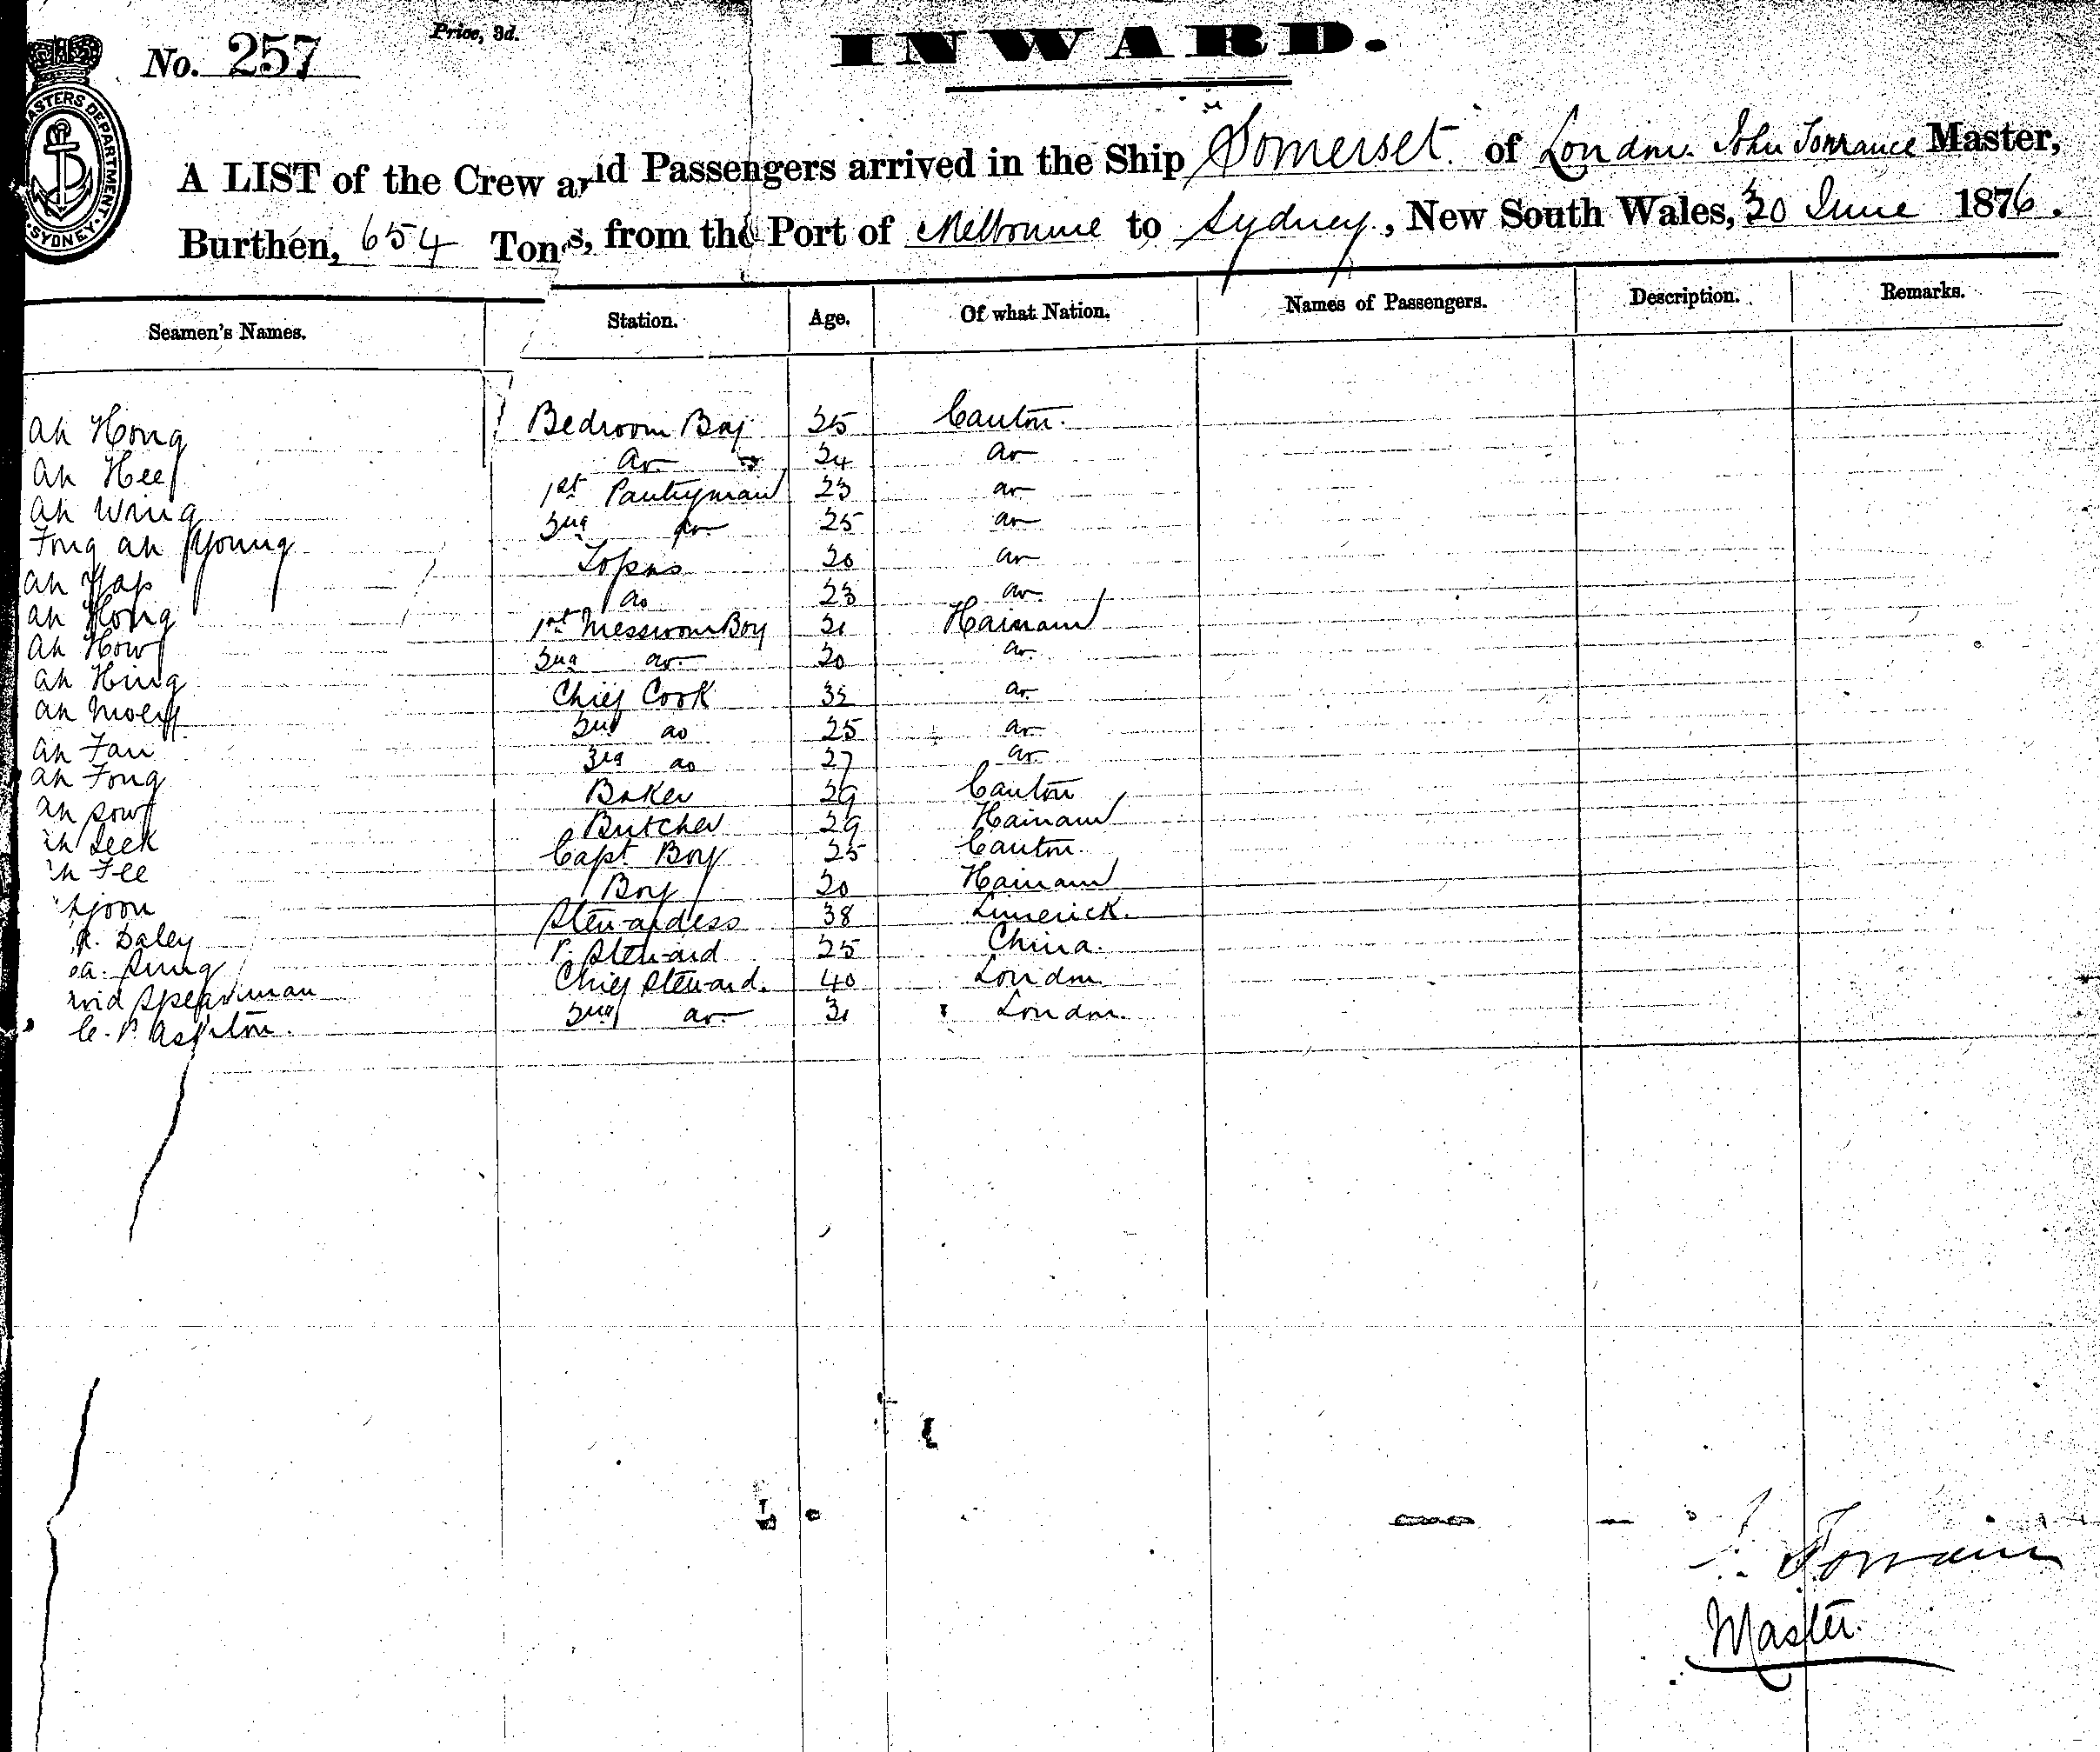 No. 257
Price, 3d.
INWARD.
MASTERS DEPARTMENT. SYDNEY.
A LIST of the Crew and Passengers arrived in the Ship "Somerset" of London. John Torrance Master,
Burthen, 654 Tons, from the Port of Melbourne to Sydney, New South Wales, 30 June 1876.
Seamen's Names. Station. Age. Of what Nation. Names of Passengers. Description. Remarks.
Ah Hong Bedroom Boy 25 Canton.
Ah Hee do 24 do
Ah Wing 1st Pantryman 23 do
Fong Ah Young 2nd do 25 do
Ah Yap Topas 20 do
Ah Hong do 23 do
Ah How 1st Messroom Boy 21 Hainam
Ah Hing 2nd do 20 do
Ah Chief Cook 32 do
Ah Fan 2nd do 25 do
Ah Fong 3rd do 27 do
Ah Sow Baker 29 Canton
Ah Seek Butcher 29 Hainam
Ah Fee Capt Boy 25 Canton
Boy 20 Hainam
Daley Stewardess 38 Limerick.
P. Steward 25 China.
Spearman Chief Steward. 40 London
C. P. Ashton. 2nd do 31 London.
J. Torrance
Master.